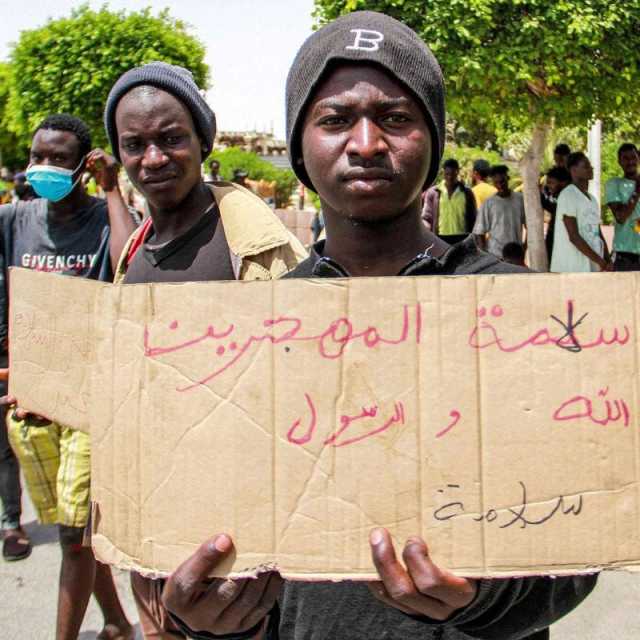 B
GIVENCHY
سلامة المهجرين
الله و الرسول
سلامة